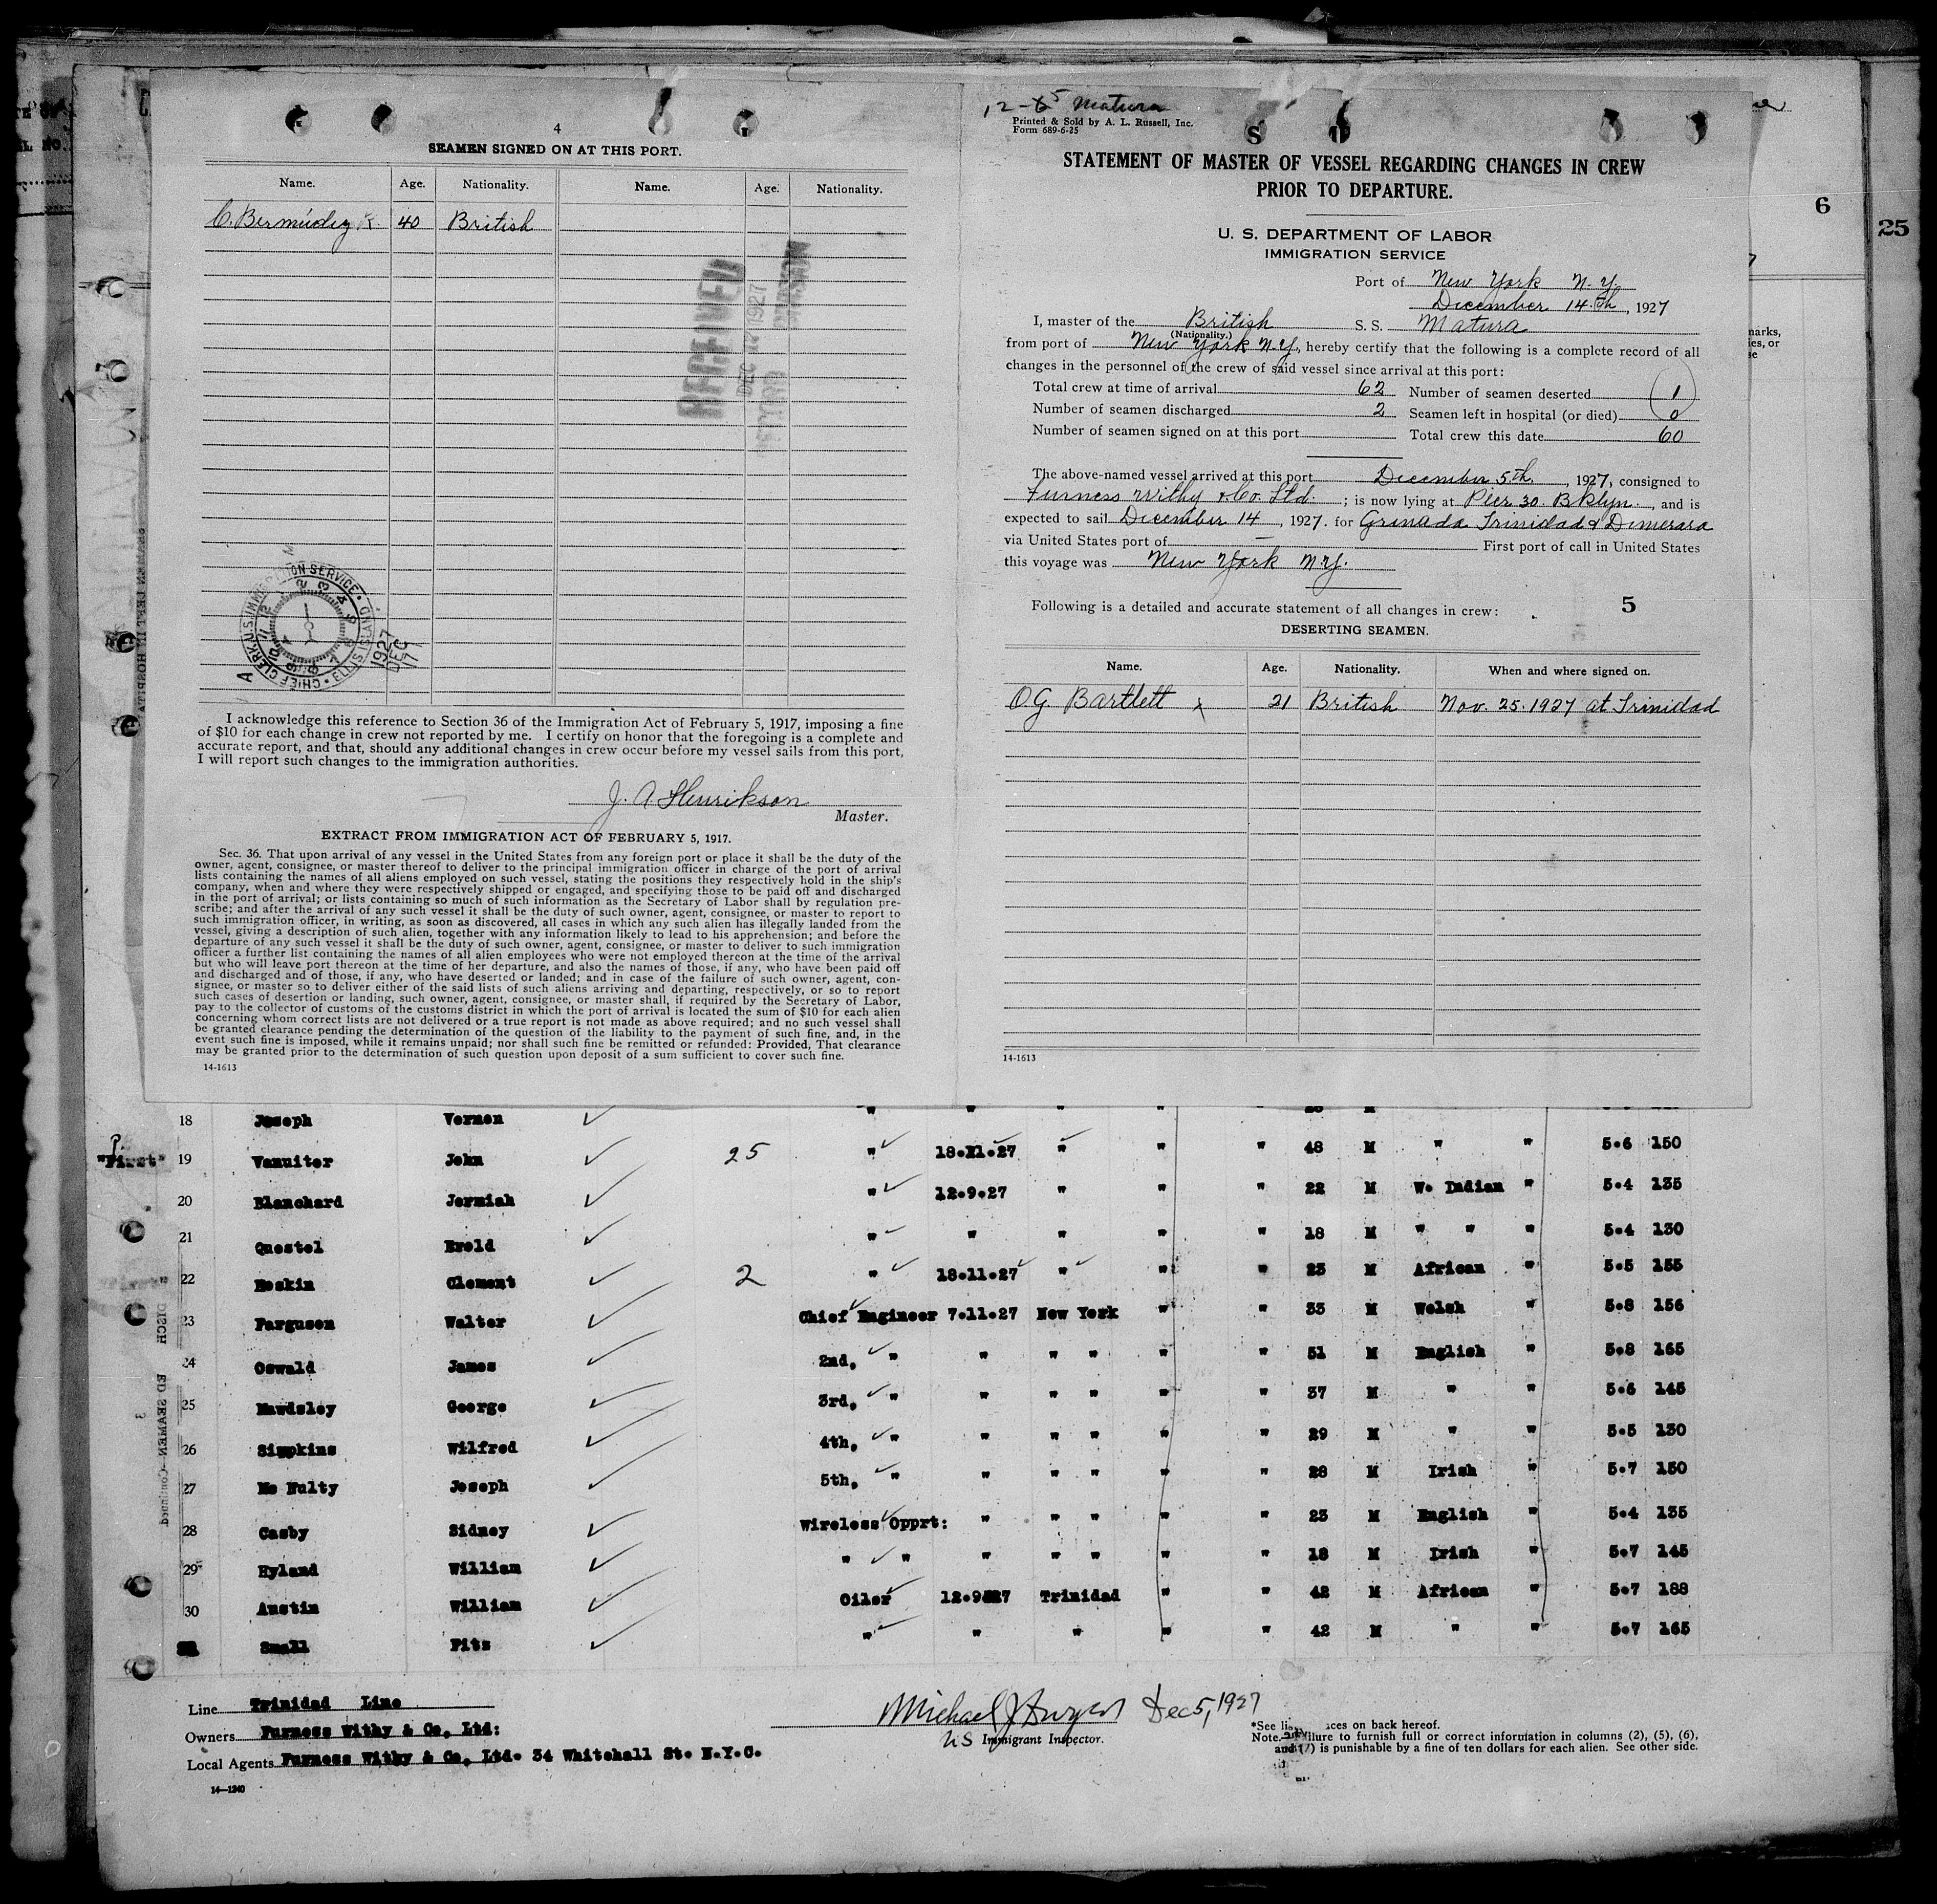 4
SEAMEN SIGNED ON AT THIS PORT.
Name. Age. Nationality. Name. Age. Nationality.
C. Bermudez 40 British
RECEIVED
DEC 14 1927
CHIEF CLERK U.S. IMMIGRATION SERVICE · ELLIS ISLAND
1927
DEC
17
I acknowledge this reference to Section 36 of the Immigration Act of February 5, 1917, imposing a fine
of $10 for each change in crew not reported by me. I certify on honor that the foregoing is a complete and
accurate report, and that, should any additional changes in crew occur before my vessel sails from this port,
I will report such changes to the immigration authorities.
J. A Henrikson
Master.
EXTRACT FROM IMMIGRATION ACT OF FEBRUARY 5, 1917.
Sec. 36. That upon arrival of any vessel in the United States from any foreign port or place it shall be the duty of the
owner, agent, consignee, or master thereof to deliver to the principal immigration officer in charge of the port of arrival
lists containing the names of all aliens employed on such vessel, stating the positions they respectively hold in the ship's
company, when and where they were respectively shipped or engaged, and specifying those to be paid off and discharged
in the port of arrival; or lists containing so much of such information as the Secretary of Labor shall by regulation pre-
scribe; and after the arrival of any such vessel it shall be the duty of such owner, agent, consignee, or master to report to
such immigration officer, in writing, as soon as discovered, all cases in which any such alien has illegally landed from the
vessel, giving a description of such alien, together with any information likely to lead to his apprehension; and before the
departure of any such vessel it shall be the duty of such owner, agent, consignee, or master to deliver to such immigration
officer a further list containing the names of all alien employees who were not employed thereon at the time of the arrival
but who will leave port thereon at the time of her departure, and also the names of those, if any, who have been paid off
and discharged and of those, if any, who have deserted or landed; and in case of the failure of such owner, agent, con-
signee, or master so to deliver either of the said lists of such aliens arriving and departing, respectively, or so to report
such cases of desertion or landing, such owner, agent, consignee, or master shall, if required by the Secretary of Labor,
pay to the collector of customs of the customs district in which the port of arrival is located the sum of $10 for each alien
concerning whom correct lists are not delivered or a true report is not made as above required; and no such vessel shall
be granted clearance pending the determination of the question of the liability to the payment of such fine, and, in the
event such fine is imposed, while it remains unpaid; nor shall such fine be remitted or refunded: Provided, That clearance
may be granted prior to the determination of such question upon deposit of a sum sufficient to cover such fine.
14-1613
Matura
Printed & Sold by A. L. Russell, Inc.
Form 689-6-25
STATEMENT OF MASTER OF VESSEL REGARDING CHANGES IN CREW
PRIOR TO DEPARTURE.
U. S. DEPARTMENT OF LABOR
IMMIGRATION SERVICE
Port of New York N.Y.
December 14th, 1927
I, master of the British S. S. Matura
(Nationality.)
from port of New York N.Y., hereby certify that the following is a complete record of all
changes in the personnel of the crew of said vessel since arrival at this port:
Total crew at time of arrival 62 Number of seamen deserted 1
Number of seamen discharged 2 Seamen left in hospital (or died) 0
Number of seamen signed on at this port Total crew this date 60
The above-named vessel arrived at this port December 5th, 1927, consigned to
Furness Withy & Co. Ltd. ; is now lying at Pier 30. Bklyn., and is
expected to sail December 14, 1927. for Grenada Trinidad & Dimerara
via United States port of — First port of call in United States
this voyage was New York N.Y.
Following is a detailed and accurate statement of all changes in crew: 5
DESERTING SEAMEN.
Name. Age. Nationality. When and where signed on.
O.G. Bartlett x 21 British Nov. 25. 1927 at Trinidad
14-1613
6
25
18 Joseph Vernon
"First" 19 Vanuiter John 25 " 18.11.27 " " " 48 M " " 5.6 150
20 Blanchard Jermiah " 12.9.27 " " " 22 M W. Indian " 5.4 135
21 Questel Erold " " " " " 18 M " " " 5.4 130
22 Heskin Clement 2 " 18.11.27 " " " 23 M African " 5.5 155
23 Farguson Walter Chief Engineer 7.11.27 New York " " 33 M Welsh " 5.8 156
24 Oswald James 2nd, " " " " " " 51 M English " 5.8 165
25 Mawdsley George 3rd, " " " " " " 37 M " " 5.6 145
26 Simpkins Wilfred 4th, " " " " " " 29 M " " 5.5 130
27 Mc Nulty Joseph 5th, " " " " " " 28 M Irish " 5.7 150
28 Casby Sidney Wireless Opprt: " " " " " 23 M English " 5.4 135
29 Hyland William " " " " " " " 18 M Irish " 5.7 145
30 Austin William Oiler 12.9.27 Trinidad " " 42 M African " 5.7 188
Small Fitz " " " " " 42 M " " 5.7 165
Line Trinidad Line
Owners Furness Withy & Co, Ltd:
Local Agents Furness Withy & Co, Ltd. 34 Whitehall St. N.Y.C.
14—1240
Michael J Dec 5, 1927
US Immigrant Inspector.
*See on back hereof.
Note. failure to furnish full or correct information in columns (2), (5), (6),
and (7) is punishable by a fine of ten dollars for each alien. See other side.